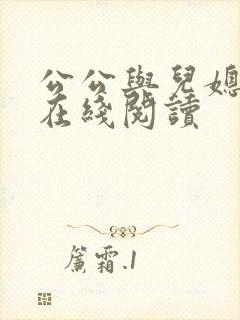 公公與兒媳
在綫閱讀
簾霜.1